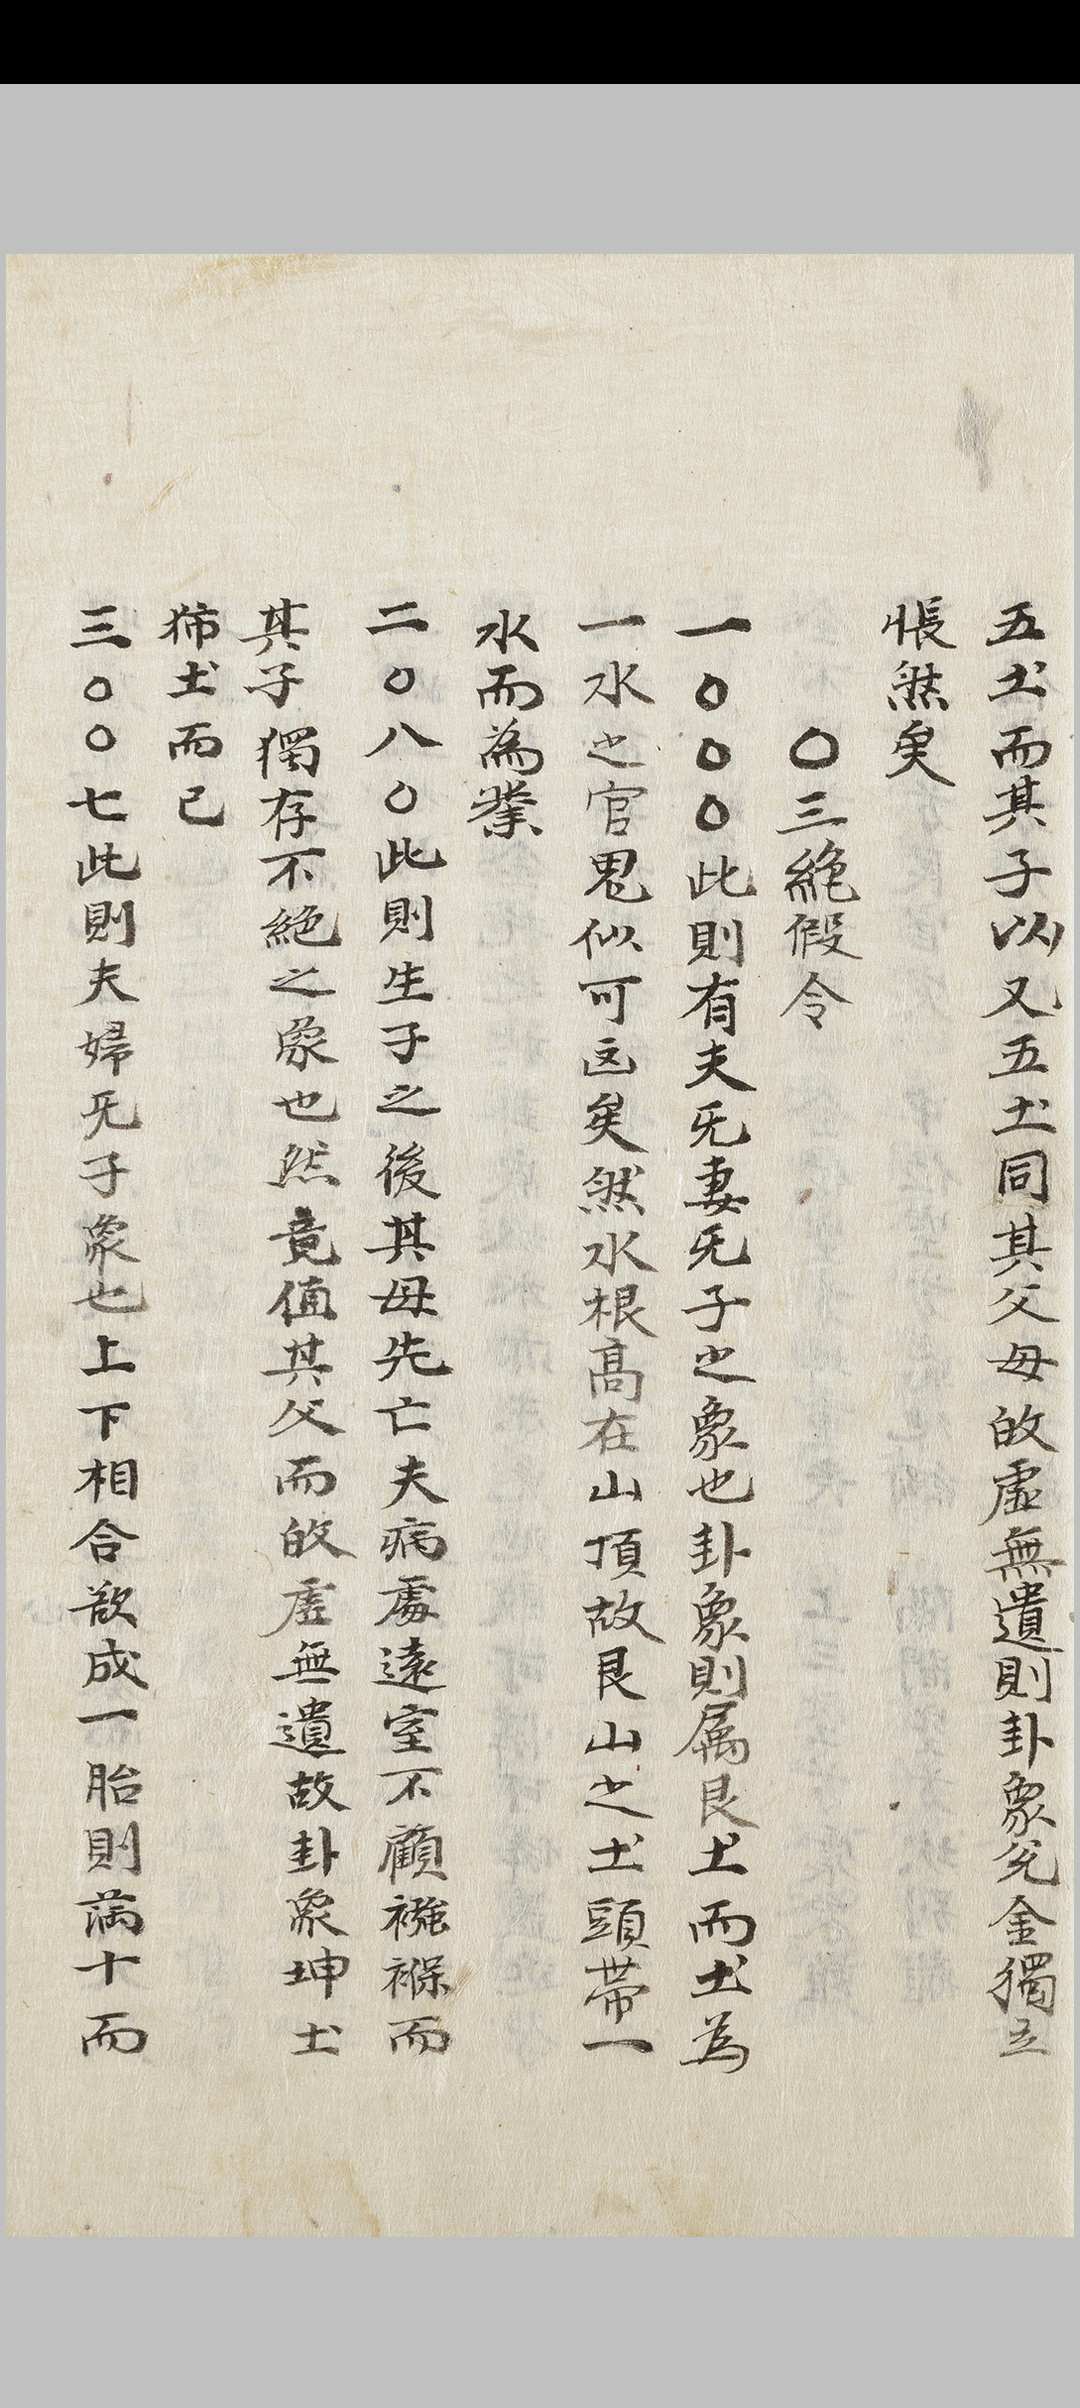 五土而其子以又五土同其父母故虛無遺則卦象兊金獨立
悵然矣
〇三絶假令
一〇〇〇此則有夫旡妻旡子之象也卦象則属艮土而土為
一水之官鬼似可凶矣然水根高在山頂故艮山之土頭帶一
水而為業
二〇八〇此則生子之後其母先亡夫病處遠室不顧襁褓而
其子獨存不絶之象也然竟值其父而故虛無遺故卦象坤土
土而已
三〇〇七此則夫婦旡子象也上下相合欲成一胎則滿十而